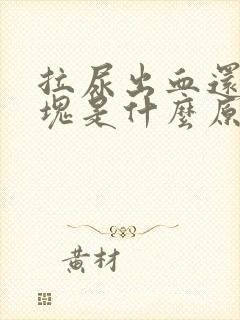 拉尿出血還
塊是什麼原
黃材